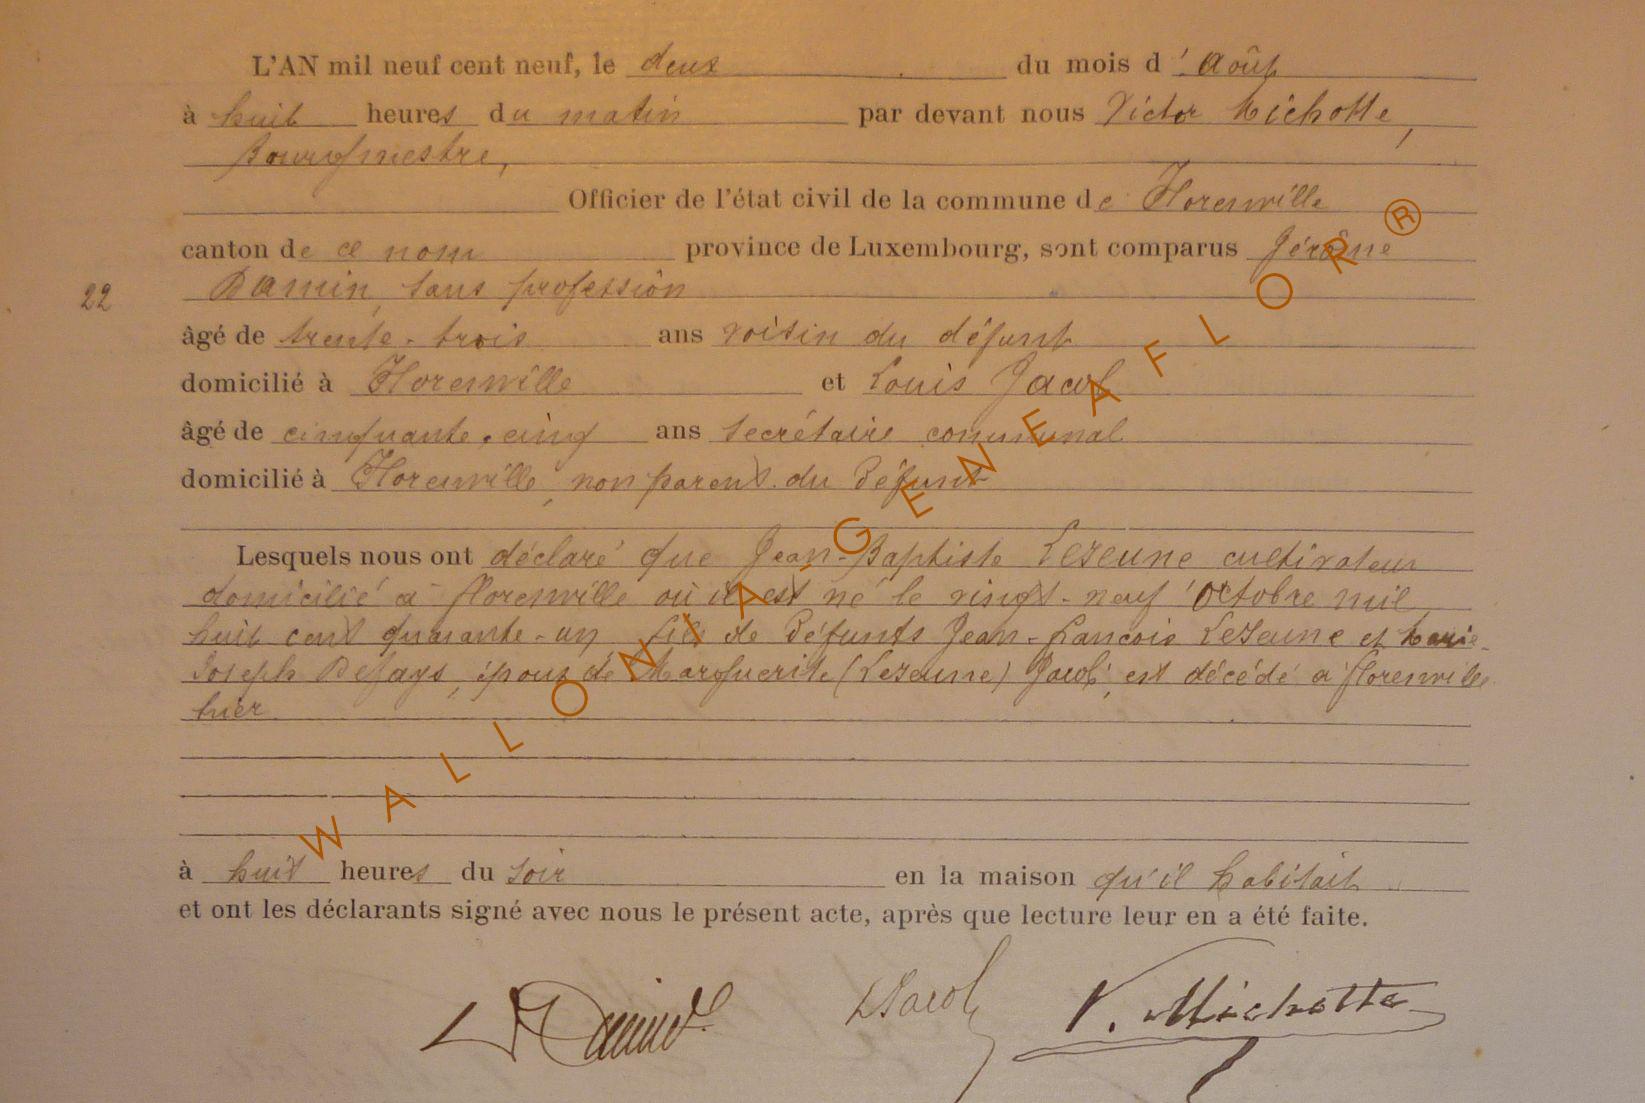 L'AN mil neuf cent neuf, le deux du mois d'Août
à huit heures du matin par devant nous Victor Michotte,
Bourgmestre,
Officier de l'état civil de la commune de Florenville
canton de ce nom province de Luxembourg, sont comparus Jérôme
22 Damin, sans profession
âgé de trente-trois ans voisin du défunt
domicilié à Florenville et Louis Jacob
âgé de cinquante-cinq ans secrétaire communal
domicilié à Florenville, non parent du Défunt
Lesquels nous ont déclaré que Jean-Baptiste Lejeune cultivateur
domicilié à Florenville où il est né le vingt-neuf Octobre mil
huit cent quarante-un fils de Défunts Jean-François Lejeune et Marie-
Joseph Defays, époux de Marguerite (Lejeune) Jacob, est décédé à Florenville
hier
à huit heures du soir en la maison qu'il habitait
et ont les déclarants signé avec nous le présent acte, après que lecture leur en a été faite.
LJacob V. Michotte
WALLONIA-GENEAFLOR®